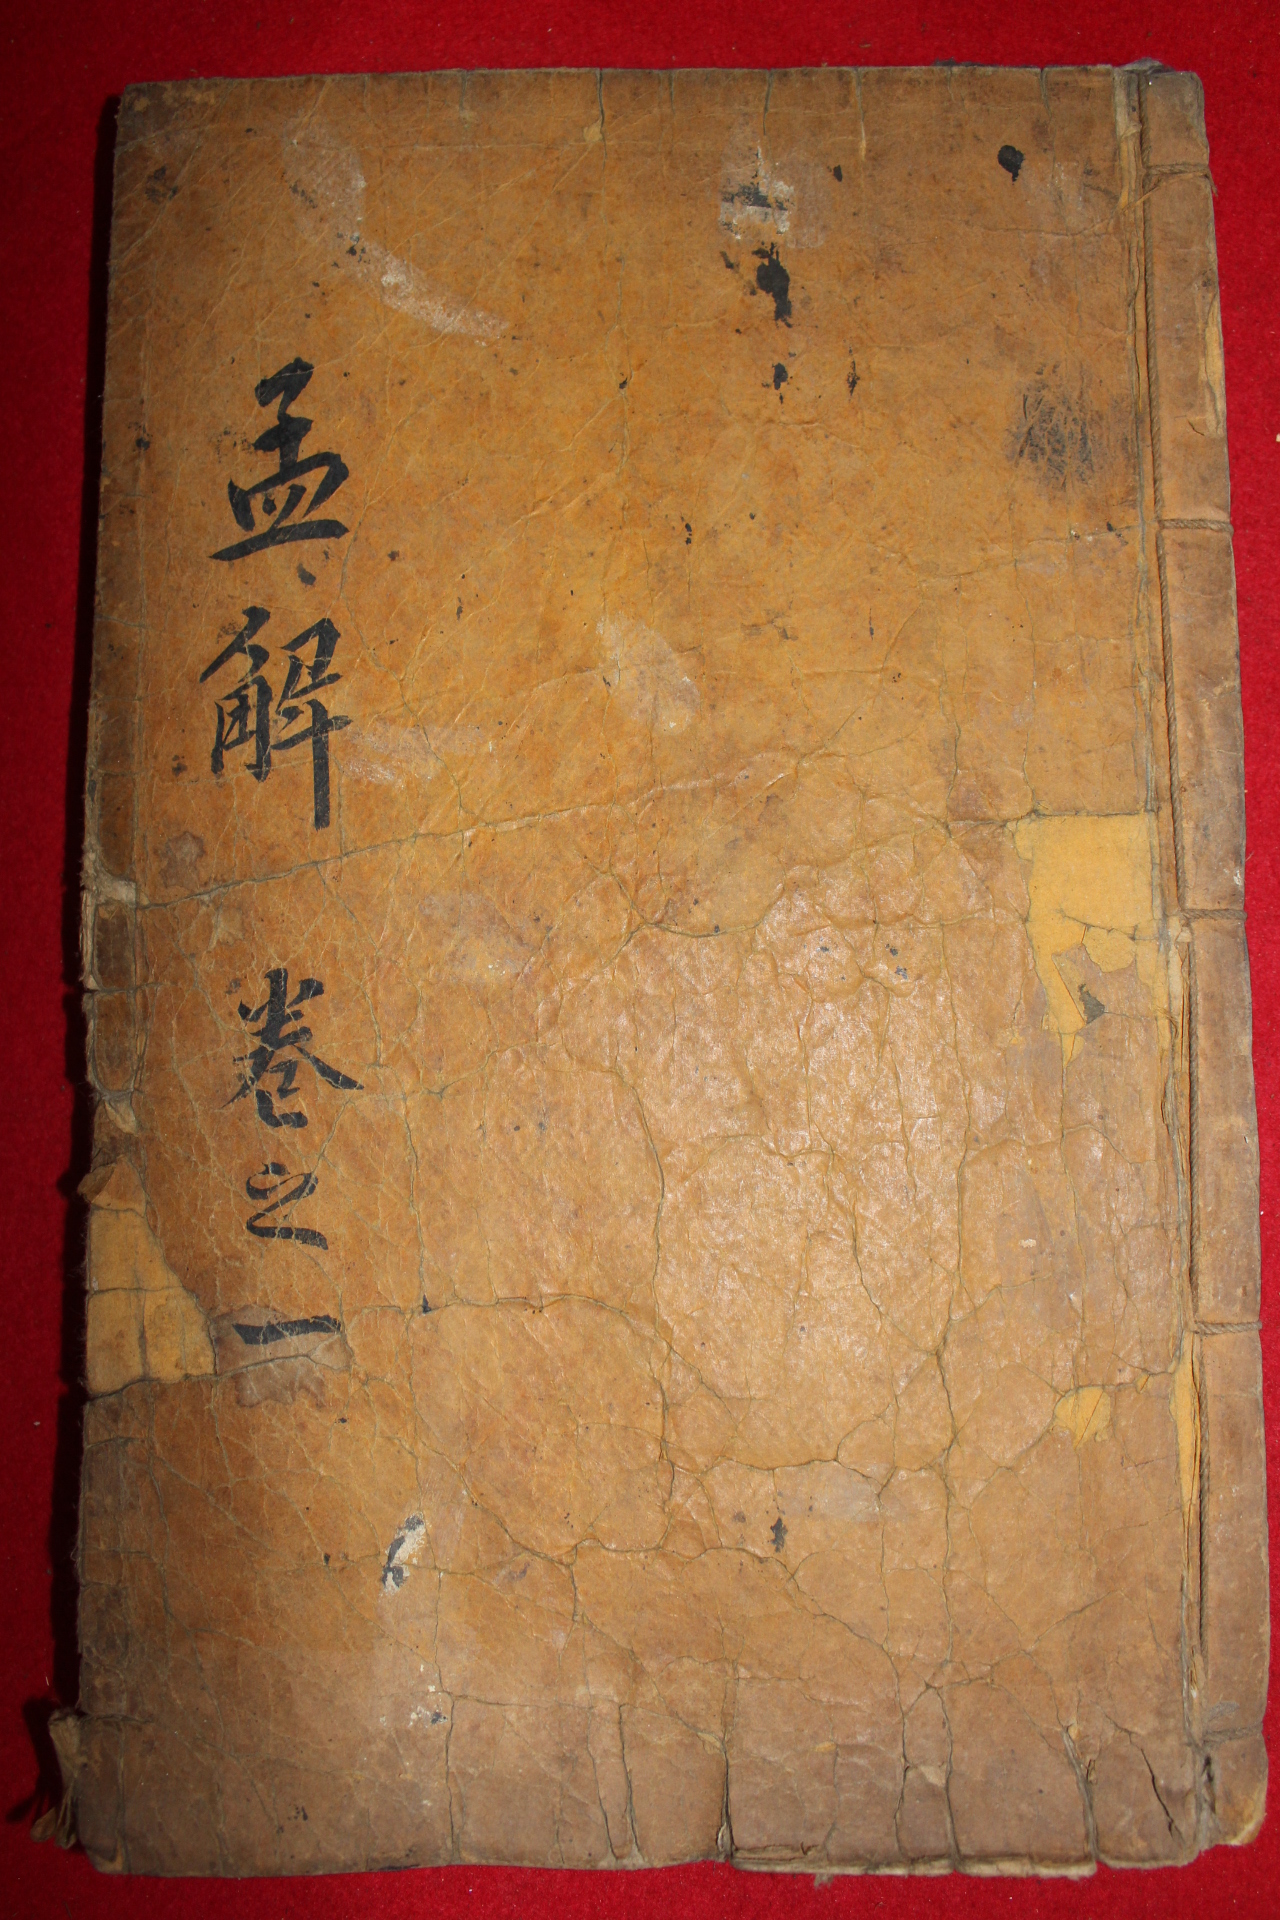 孟解 卷之一